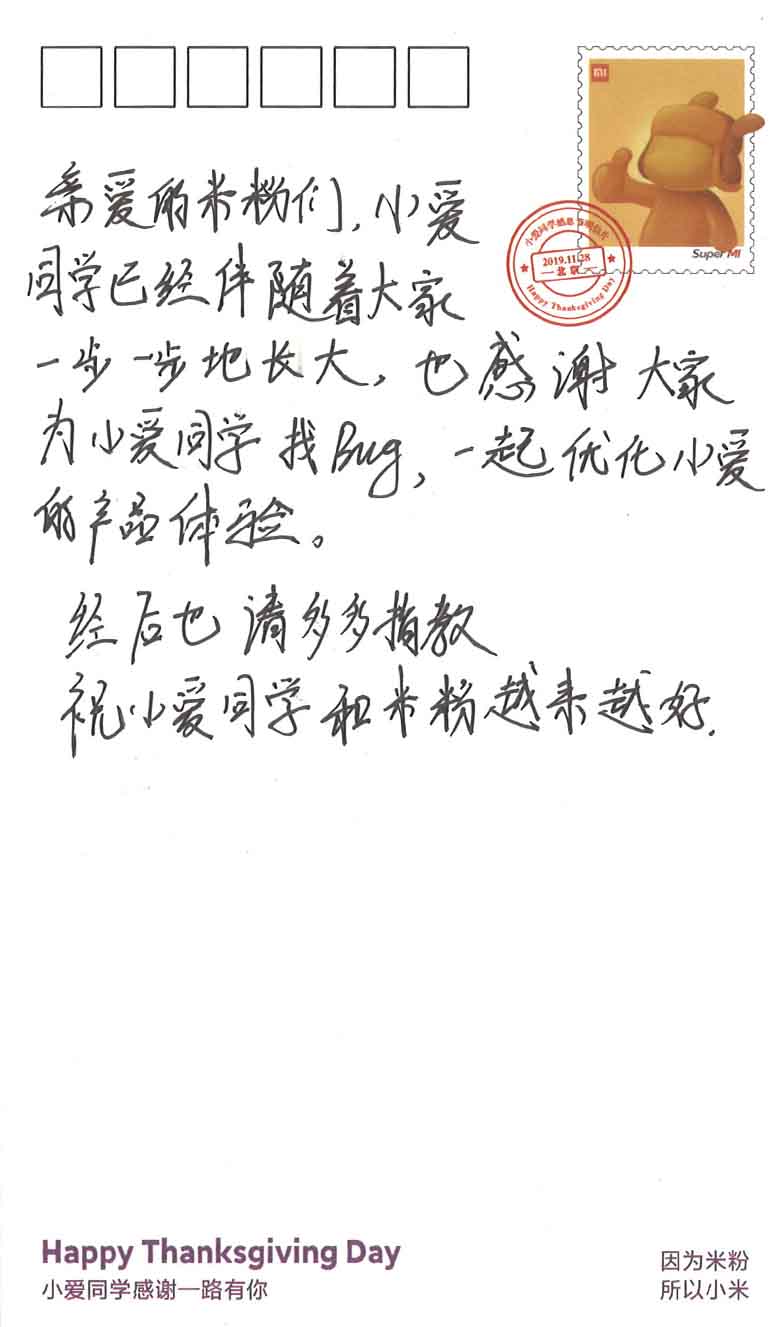 MI
亲爱的米粉们,小爱
Super MI
小爱同学感恩节明信片
2019.11.28
北京
Happy Thanksgiving Day
同学已经伴随着大家
一步一步地长大,也感谢大家
为小爱同学找Bug,一起优化小爱
的产品体验。
经后也请多多指教
祝小爱同学和米粉越来越好.
Happy Thanksgiving Day
小爱同学感谢一路有你
因为米粉
所以小米